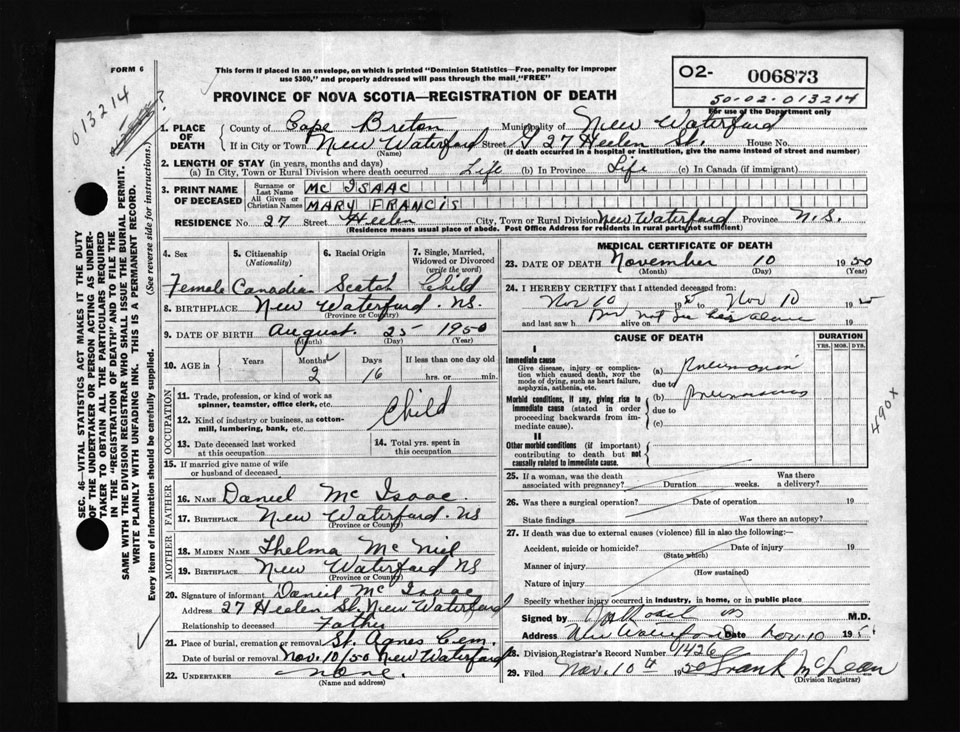 FORM 6
This form if placed in an envelope, on which is printed "Dominion Statistics—Free, penalty for improper
use $300," and properly addressed will pass through the mail "FREE"
PROVINCE OF NOVA SCOTIA—REGISTRATION OF DEATH
O2- 006873
50-02-013214
For use of the Department only
013214
1. PLACE OF DEATH County of Cape Breton Municipality of New Waterford
If in City or Town New Waterford Street 27 Heelen St. House No.
(Name) (If death occurred in a hospital or institution, give the name instead of street and number)
2. LENGTH OF STAY (in years, months and days)
(a) In City, Town or Rural Division where death occurred Life (b) In Province Life (c) In Canada (if immigrant)
3. PRINT NAME OF DECEASED Surname or Last Name MC ISAAC
All Given or Christian Names MARY FRANCIS
RESIDENCE No. 27 Street Heelen City, Town or Rural Division New Waterford Province N.S.
(Residence means usual place of abode. Post Office Address for residents in rural parts not sufficient)
4. Sex 5. Citizenship (Nationality) 6. Racial Origin 7. Single, Married, Widowed or Divorced (write the word)
Female Canadian Scotch Child
8. BIRTHPLACE New Waterford. NS.
(Province or Country)
9. DATE OF BIRTH August. 25 1950
(Month) (Day) (Year)
10. AGE in Years Months Days If less than one day old
2 16 hrs. or min.
OCCUPATION
11. Trade, profession, or kind of work as spinner, teamster, office clerk, etc.
Child
12. Kind of industry or business, as cotton-mill, lumbering, bank, etc.
13. Date deceased last worked at this occupation 14. Total yrs. spent in this occupation
15. If married give name of wife or husband of deceased
FATHER
16. NAME Daniel Mc Isaac.
17. BIRTHPLACE New Waterford. NS
(Province or Country)
MOTHER
18. MAIDEN NAME Thelma Mc Niel
19. BIRTHPLACE New Waterford NS
(Province or Country)
20. Signature of informant Daniel Mc Isaac
Address 27 Heelen St. New Waterford
Relationship to deceased Father
21. Place of burial, cremation or removal St. Agnes Cem.
Date of burial or removal Nov. 10/50 New Waterford
22. UNDERTAKER none.
(Name and address)
MEDICAL CERTIFICATE OF DEATH
23. DATE OF DEATH November 10 1950
(Month) (Day) (Year)
24. I HEREBY CERTIFY that I attended deceased from:
Nov 10 19 to Nov 10 19
and last saw h alive on Did not see her alive 19
CAUSE OF DEATH DURATION
YRS. MOS. DYS.
I
Immediate cause
Give disease, injury or complication which caused death, NOT the mode of dying, such as heart failure, asphyxia, asthenia, etc.
(a) Pneumonia
due to
Morbid conditions, if any, giving rise to immediate cause (stated in order proceeding backwards from immediate cause).
(b)
due to
(c)
490x
II
Other morbid conditions (if important) contributing to death but not causally related to immediate cause.
25. If a woman, was the death associated with pregnancy? Duration weeks. Was there a delivery?
26. Was there a surgical operation? Date of operation 19
State findings Was there an autopsy?
27. If death was due to external causes (violence) fill in also the following:
Accident, suicide or homicide? Date of injury 19
(State which)
Manner of injury
(How sustained)
Nature of injury
Specify whether injury occurred in industry, in home, or in public place
Signed by M.D.
Address New Waterford Date Nov. 10 195
28. Division Registrar's Record Number 1426
29. Filed Nov. 10th 1950 Frank McLean
(Division Registrar)
SEC. 46—VITAL STATISTICS ACT MAKES IT THE DUTY
OF THE UNDERTAKER OR PERSON ACTING AS UNDER-
TAKER TO OBTAIN ALL THE PARTICULARS REQUIRED
IN THE "REGISTRATION OF DEATH" AND TO FILE THE
SAME WITH THE DIVISION REGISTRAR WHO SHALL ISSUE THE BURIAL PERMIT.
WRITE PLAINLY WITH UNFADING INK. THIS IS A PERMANENT RECORD.
Every item of information should be carefully supplied. (See reverse side for instructions.)